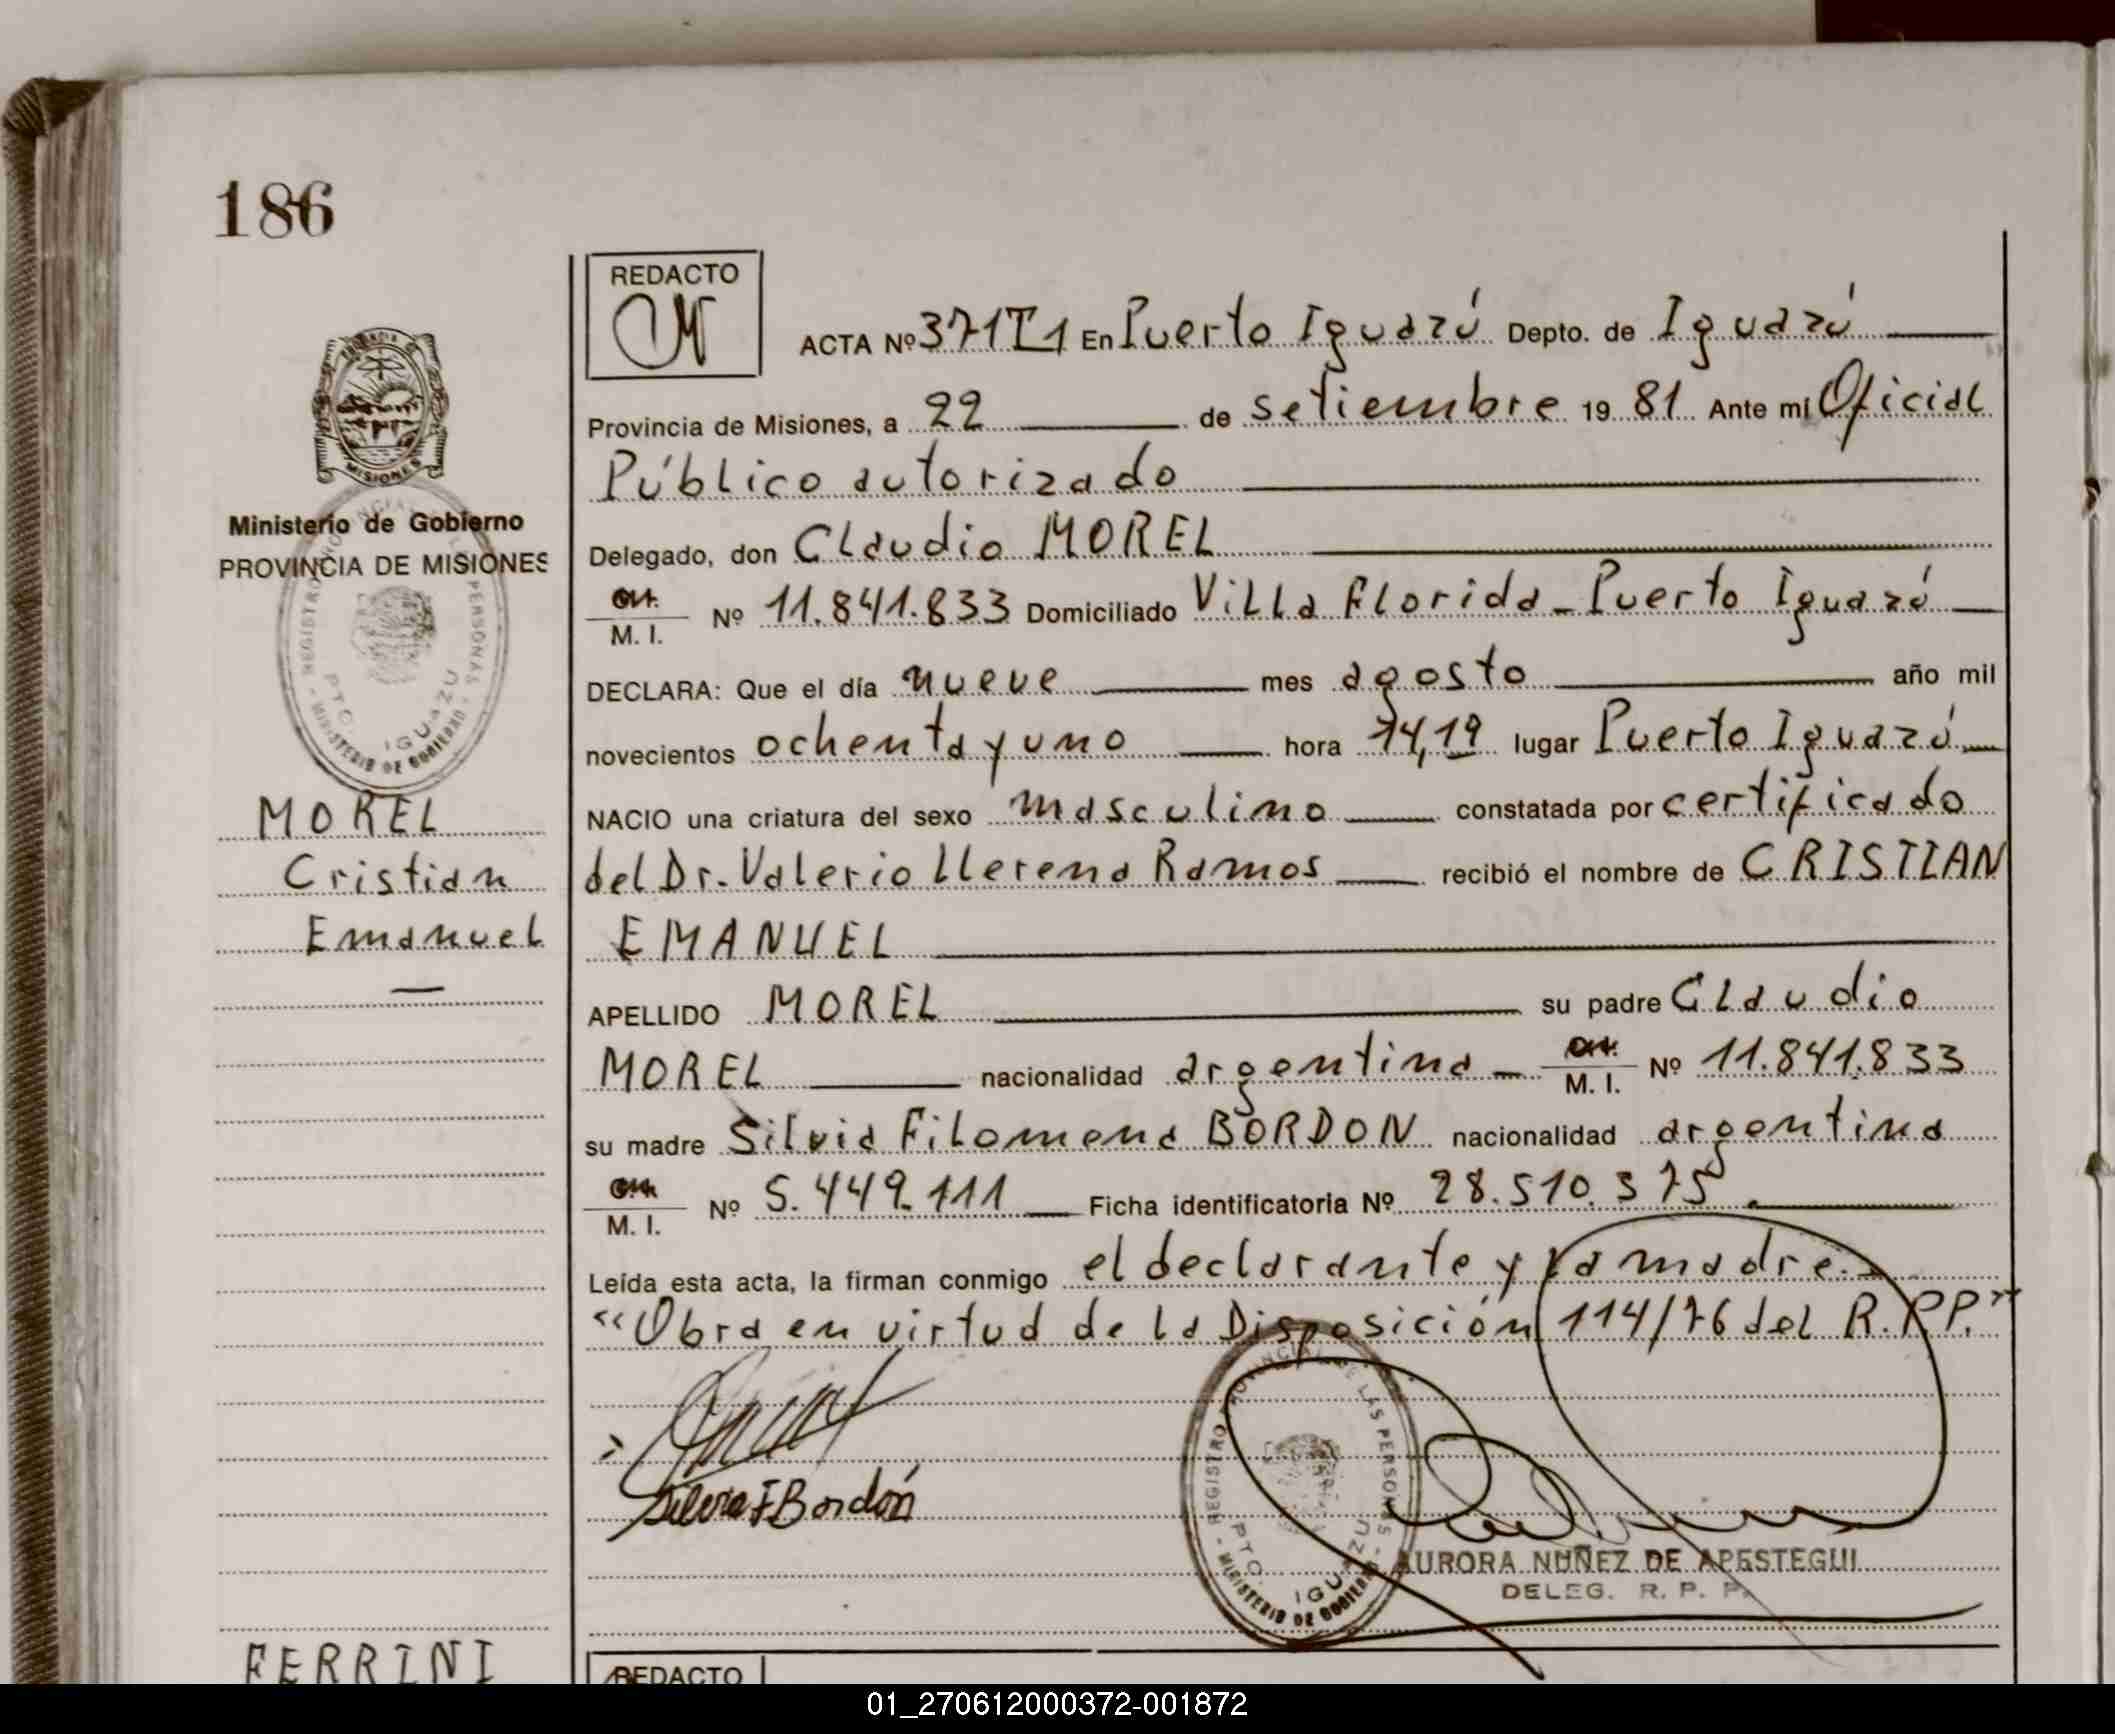 186
REDACTO
ACTA Nº 371T1 En Puerto Iguazú Depto. de Iguazú
Provincia de Misiones, a 22 de setiembre 19 81 Ante mi Oficial
Público autorizado
Delegado, don Claudio MOREL
M. I. Nº 11.841.833 Domiciliado Villa Florida - Puerto Iguazú
DECLARA: Que el día nueve mes agosto año mil
novecientos ochenta y uno hora 14,19 lugar Puerto Iguazú
NACIO una criatura del sexo masculino constatada por certificado
del Dr. Valerio Llerena Ramos recibió el nombre de CRISTIAN
EMANUEL
APELLIDO MOREL su padre Claudio
MOREL nacionalidad argentina M. I. Nº 11.841.833
su madre Silvia Filomena BORDON nacionalidad argentina
M. I. Nº 5.449.111 Ficha identificatoria Nº 28.510.375.
Leída esta acta, la firman conmigo el declarante y la madre.
"Obra en virtud de la Disposición 114/76 del R.P.P."
Silvia F Bordón
REGISTRO PROVINCIAL DE LAS PERSONAS
MINISTERIO DE GOBIERNO
PTO. IGUAZU
AURORA NUÑEZ DE APESTEGUI
DELEG. R. P. P.
PROVINCIA DE MISIONES
Ministerio de Gobierno
PROVINCIA DE MISIONES
REGISTRO PROVINCIAL DE LAS PERSONAS
MINISTERIO DE GOBIERNO
PTO. IGUAZU
MOREL
Cristian
Emanuel
FERRINI
REDACTO
01_270612000372-001872